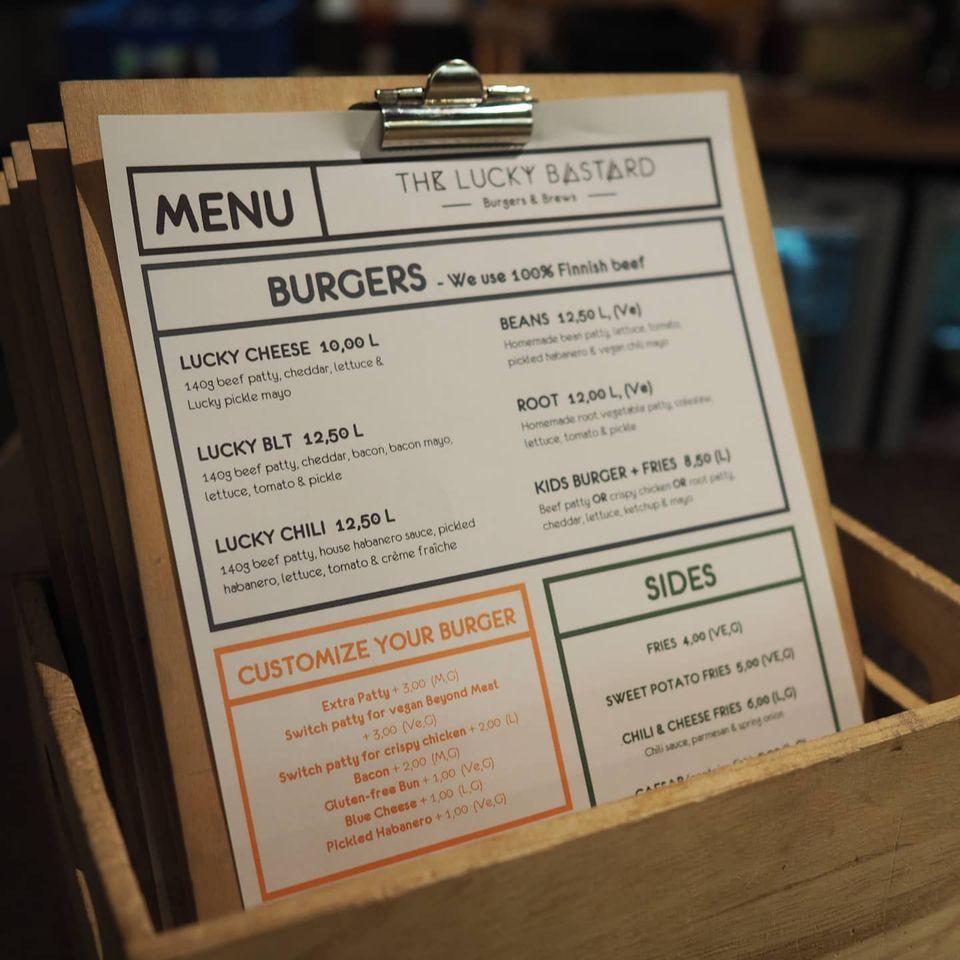 MENU
THE LUCKY BASTARD
Burgers & Brews
BURGERS - We use 100% Finnish beef
LUCKY CHEESE 10,00 L
140g beef patty, cheddar, lettuce &
Lucky pickle mayo
LUCKY BLT 12,50 L
140g beef patty, cheddar, bacon, bacon mayo,
lettuce, tomato & pickle
LUCKY CHILI 12,50 L
140g beef patty, house habanero sauce, pickled
habanero, lettuce, tomato & crème fraîche
BEANS 12,50 L, (Ve)
Homemade bean patty, lettuce, tomato,
pickled habanero & vegan chili mayo
ROOT 12,00 L, (Ve)
Homemade root vegetable patty, coleslaw,
lettuce, tomato & pickle
KIDS BURGER + FRIES 8,50 (L)
Beef patty OR crispy chicken OR root patty,
cheddar, lettuce, ketchup & mayo
CUSTOMIZE YOUR BURGER
Extra Patty + 3,00 (M,G)
Switch patty for vegan Beyond Meat
+ 3,00 (Ve,G)
Switch patty for crispy chicken + 2,00 (L)
Bacon + 2,00 (M,G)
Gluten-free Bun + 1,00 (Ve,G)
Blue Cheese + 1,00 (L,G)
Pickled Habanero + 1,00 (Ve,G)
SIDES
FRIES 4,00 (VE,G)
SWEET POTATO FRIES 5,00 (VE,G)
CHILI & CHEESE FRIES 6,00 (L,G)
Chili sauce, parmesan & spring onion